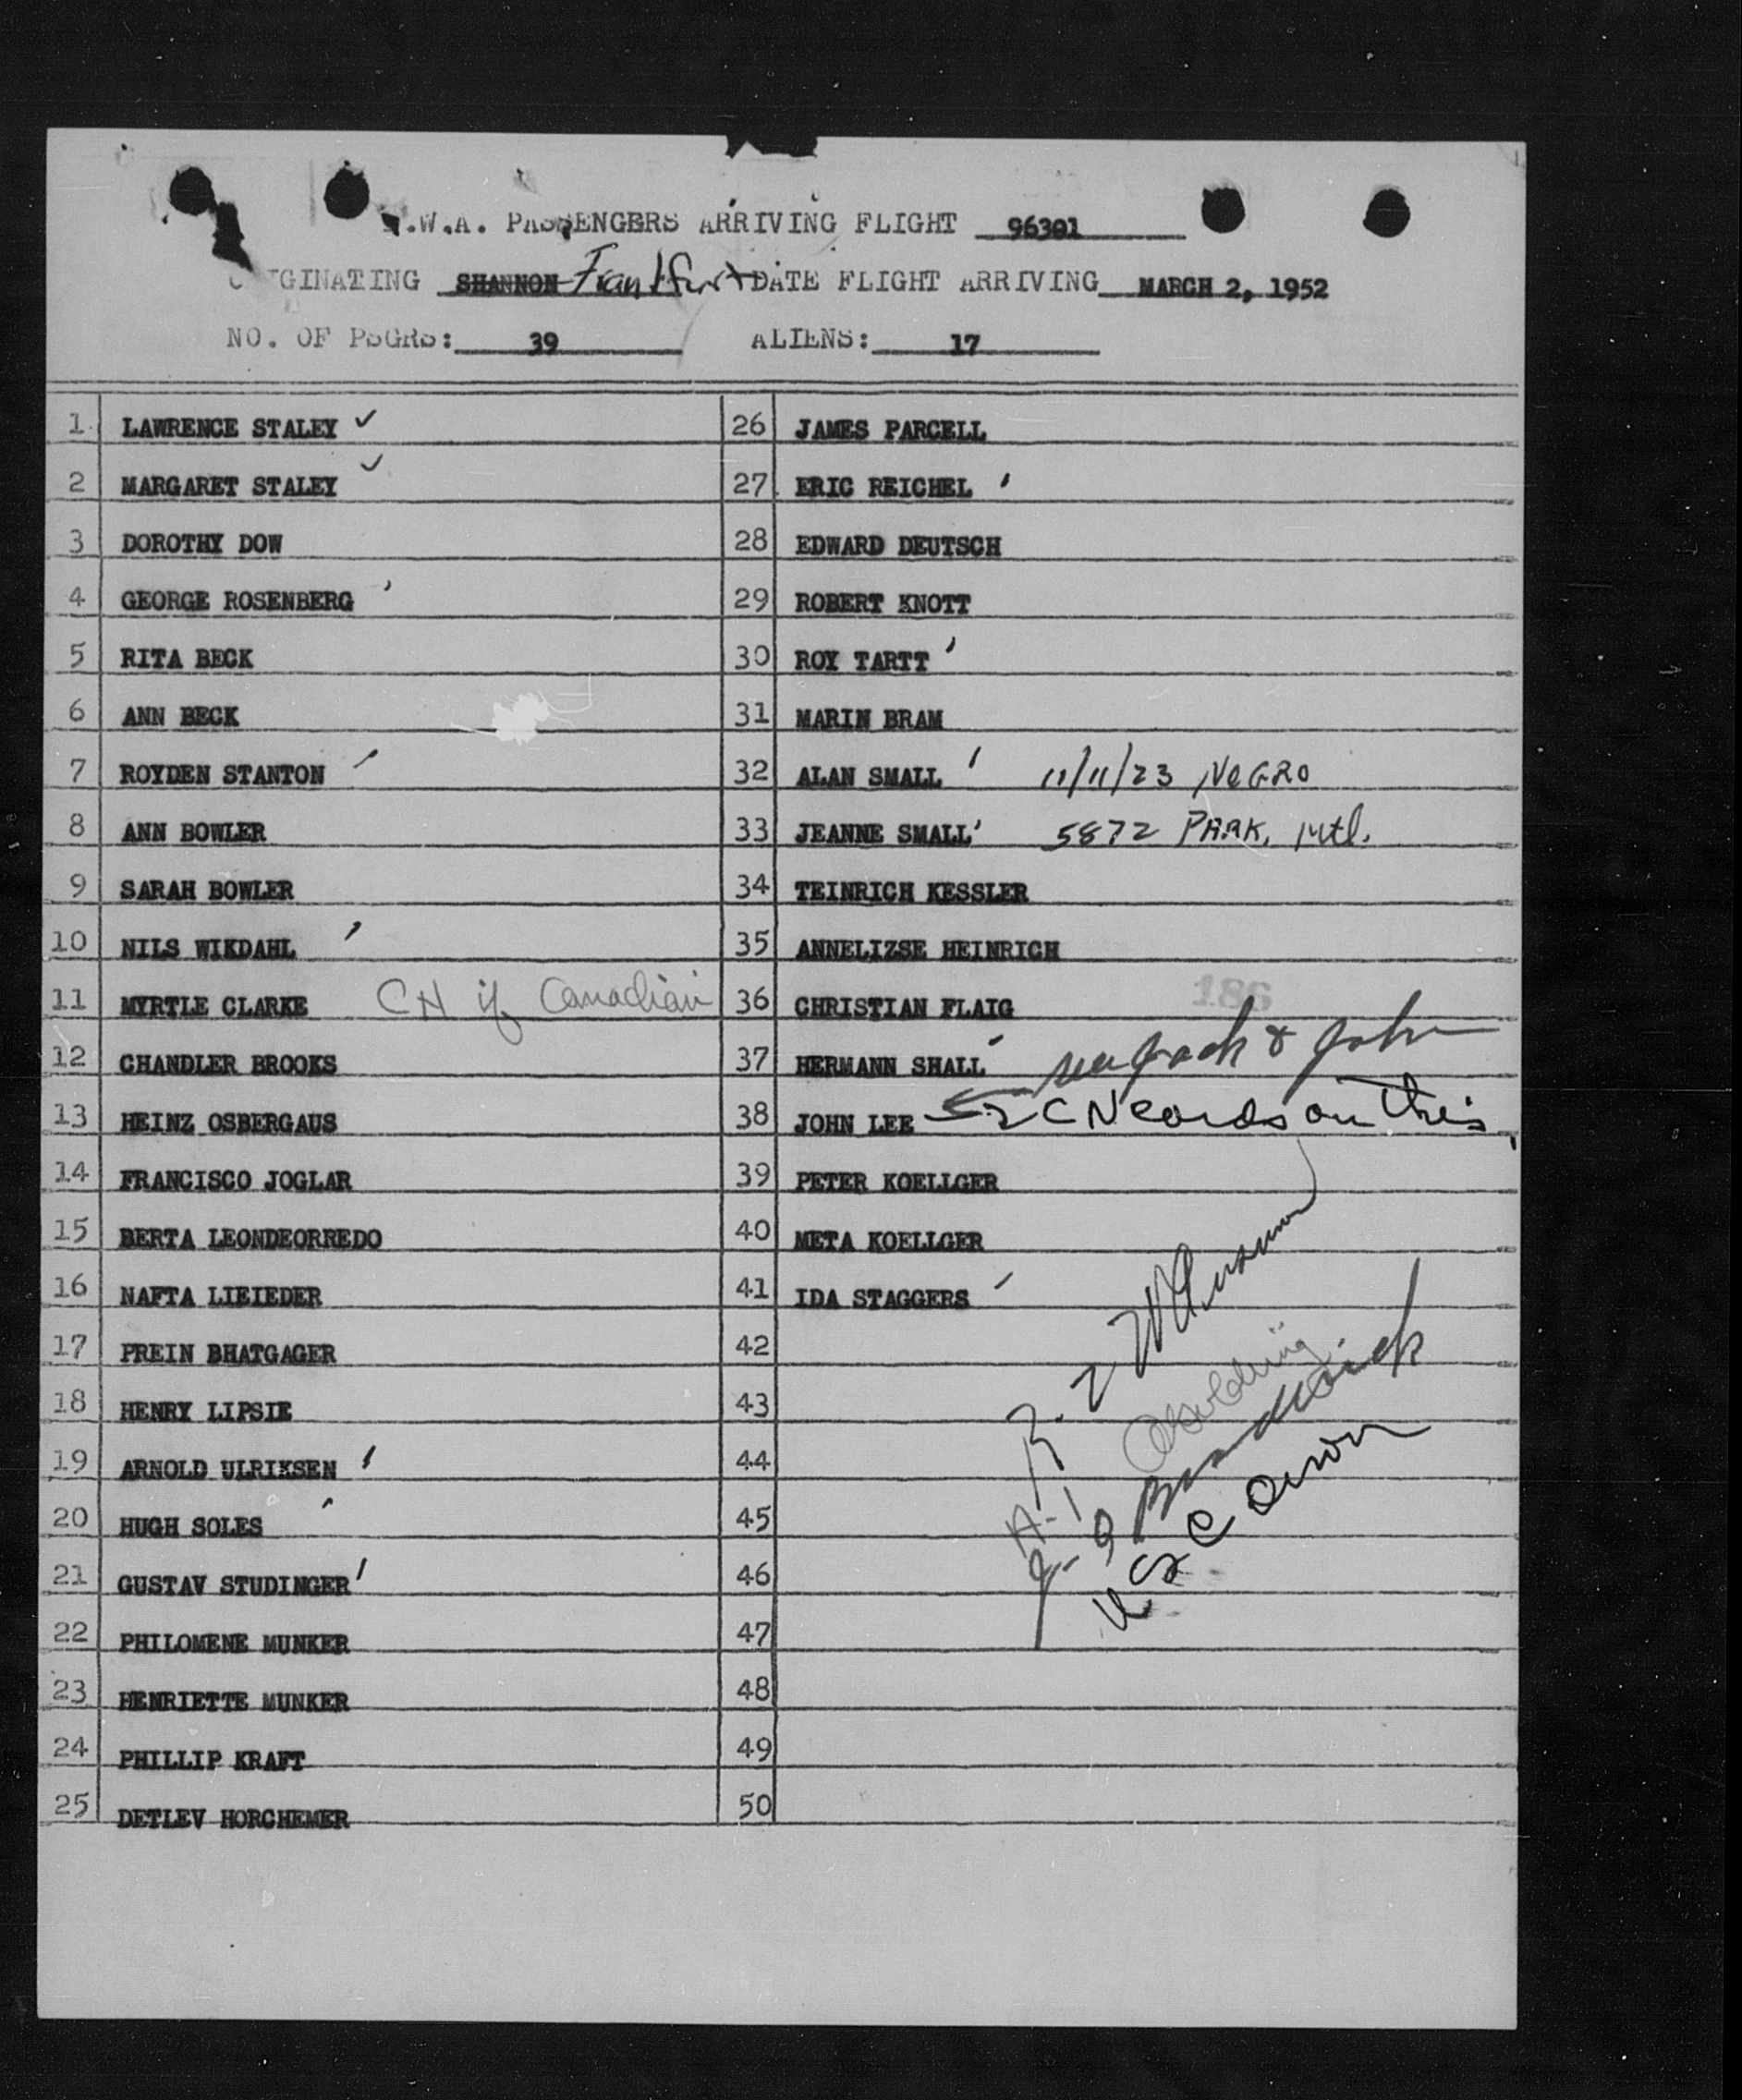 .W.A. PASSENGERS ARRIVING FLIGHT 96301
GINATING SHANNON Frankfurt DATE FLIGHT ARRIVING MARCH 2, 1952
NO. OF PSGRS: 39 ALIENS: 17
1 LAWRENCE STALEY ✓
2 MARGARET STALEY ✓
3 DOROTHY DOW
4 GEORGE ROSENBERG
5 RITA BECK
6 ANN BECK
7 ROYDEN STANTON
8 ANN BOWLER
9 SARAH BOWLER
10 NILS WIKDAHL
11 MYRTLE CLARKE CN if Canadian
12 CHANDLER BROOKS
13 HEINZ OSBERGAUS
14 FRANCISCO JOGLAR
15 BERTA LEONDEORREDO
16 NAFTA LIEIEDER
17 PREIN BHATGAGER
18 HENRY LIPSIE
19 ARNOLD ULRIKSEN
20 HUGH SOLES
21 GUSTAV STUDINGER
22 PHILOMENE MUNKER
23 HENRIETTE MUNKER
24 PHILLIP KRAFT
25 DETLEV HORCHEMER
26 JAMES PARCELL
27 ERIC REICHEL
28 EDWARD DEUTSCH
29 ROBERT KNOTT
30 ROY TARTT
31 MARIN BRAM
32 ALAN SMALL 11/11/23 NEGRO
33 JEANNE SMALL 5872 PARK, Mtl.
34 TEINRICH KESSLER
35 ANNELIZSE HEINRICH
36 CHRISTIAN FLAIG 186
37 HERMANN SHALL & John
38 JOHN LEE 2 CN cards on this
39 PETER KOELLGER
40 META KOELLGER
41 IDA STAGGERS
42
43
44
45
46
47
48
49
50